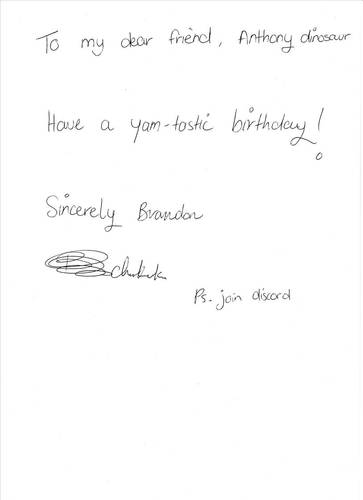 To my dear friend, Anthony dinosaur
Have a yam-tastic birthday!
Sincerely Brandon
Ps. join discord